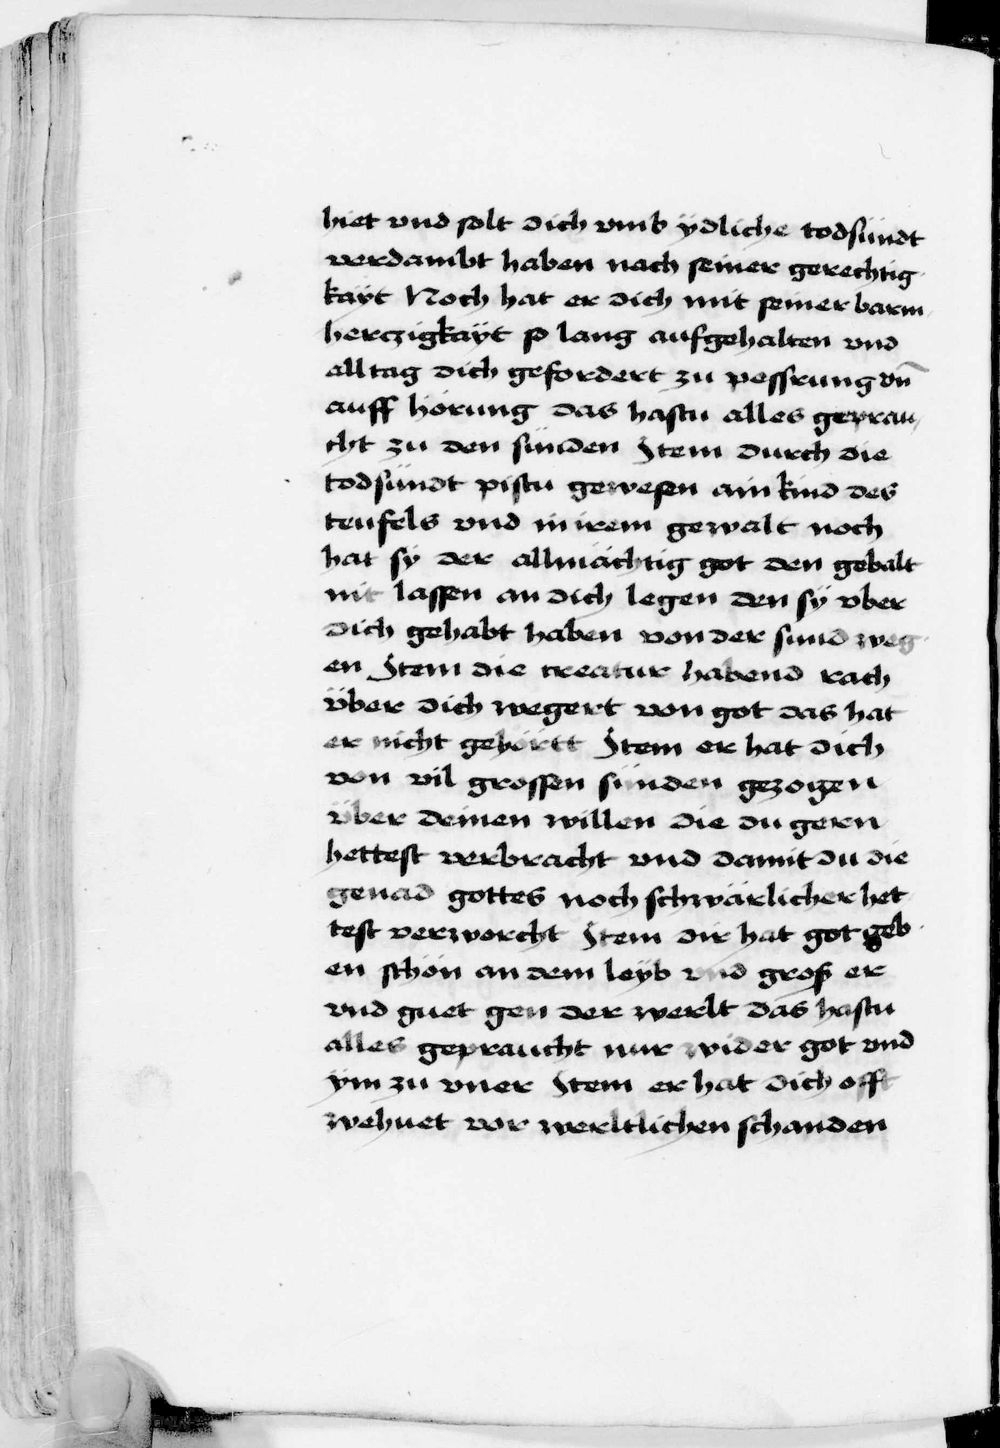 hiet vnd solt dich vmb ÿdliche todsündt
verdambt haben nach seiner gerechtig
kaÿt Noch hat er dich mit seiner barm
herczigkaÿt so lang aufgehalten vnd
alltag dich gefordert zu pessrung vn̄
auff hörung das hastu alles geprau
cht zu den sünden Item durch die
todsündt pistu gewesen ain kind des
teufels vnd in irem gewalt noch
hat sÿ der allmächtig got den gebalt
nit lassen an dich legen den sÿ vber
dich gehabt haben von der sund weg
en Item die creatur habend rach
über dich wegert von got das hat
er nicht gehörtt Item er hat dich
von vil grossen sünden gezogen
über deinen willen die du gern
hettest verbracht vnd damit du die
genad gottes noch schwärlicher het
test verworcht Item dir hat got geb
en schön an dem leÿb vnd groß er
vnd guet gen der werlt das hastu
alles gepraucht nur wider got vnd
ÿm zu vner Item er hat dich offt
wehuet vor werltlichen schanden